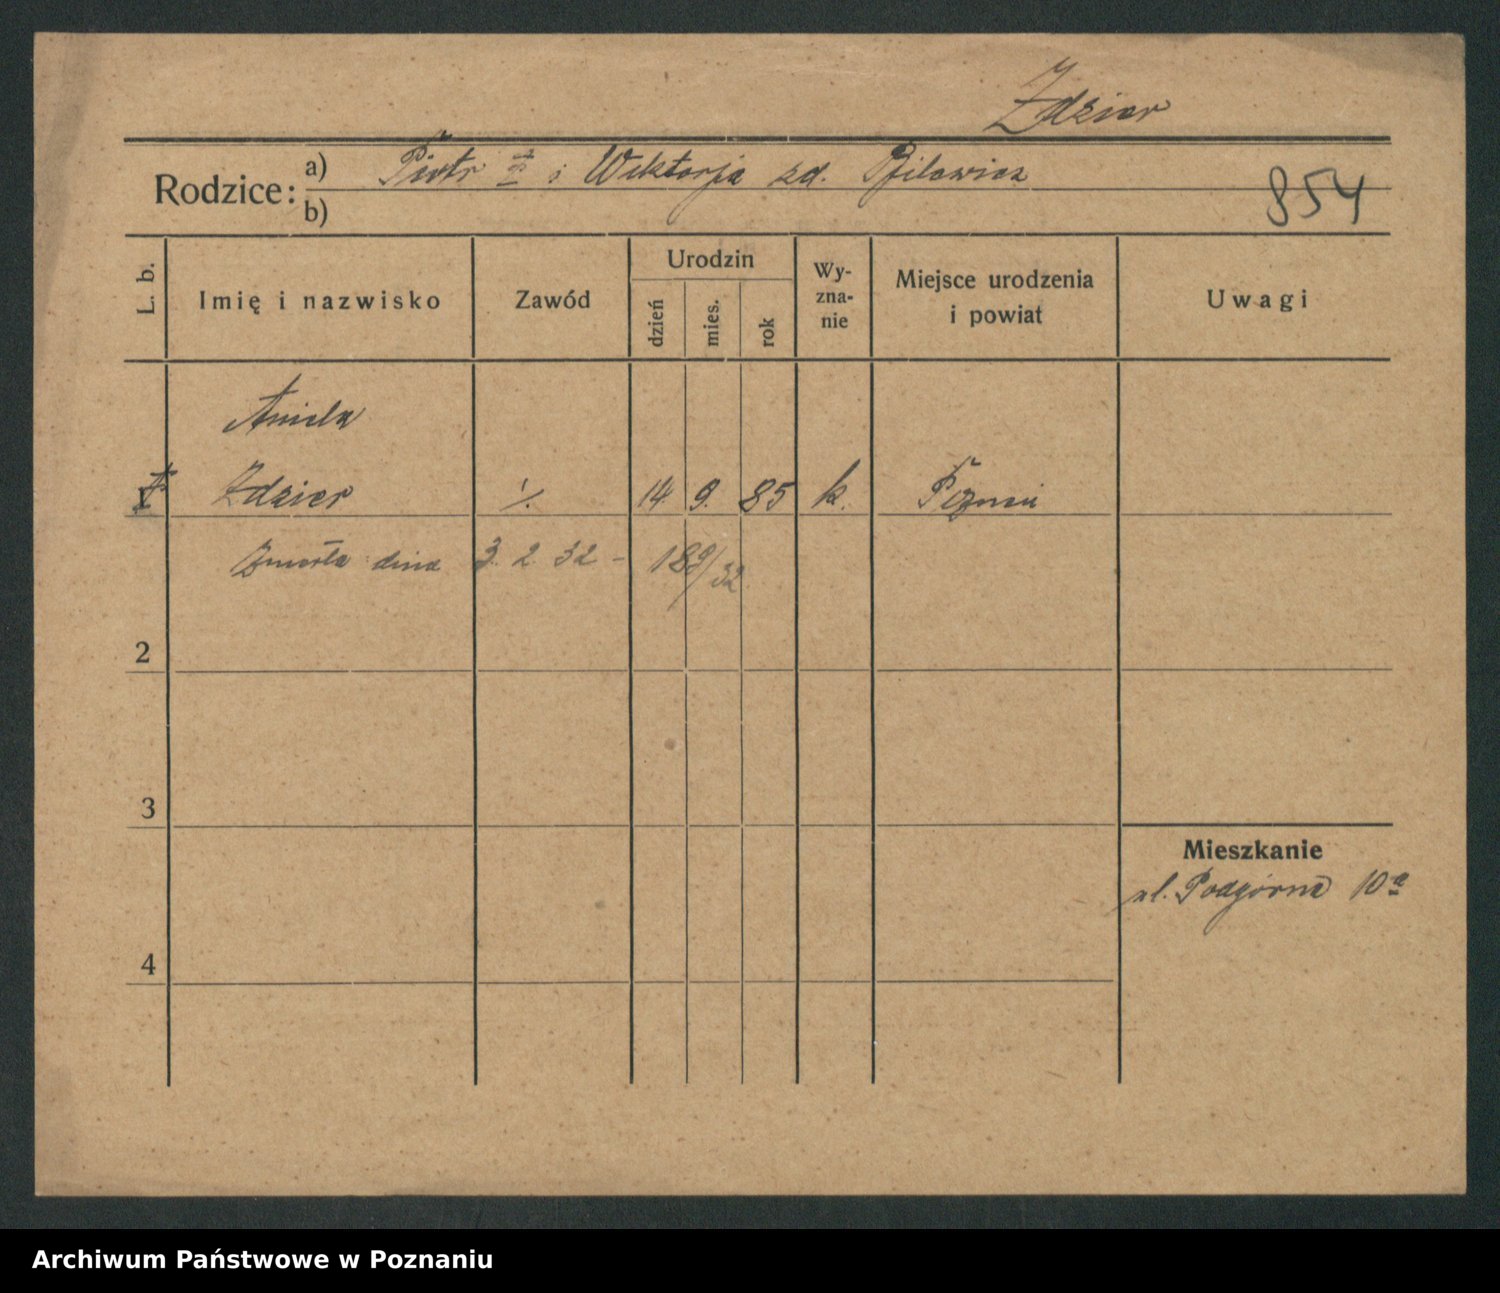 Zdzier
Rodzice:
a) Piotr ‡ i Wiktorja zd.
b)
854
L. b.
Imię i nazwisko
Zawód
Urodzin
dzień
mies.
rok
Wy-
zna-
nie
Miejsce urodzenia
i powiat
Uwagi
Aniela
1 Zdzier ·/. 14 9. 85 k. Poznań
Zmarła dnia 3. 2. 32 – 189/32
2
3
Mieszkanie
ul. Podgórna 10a
4
Archiwum Państwowe w Poznaniu